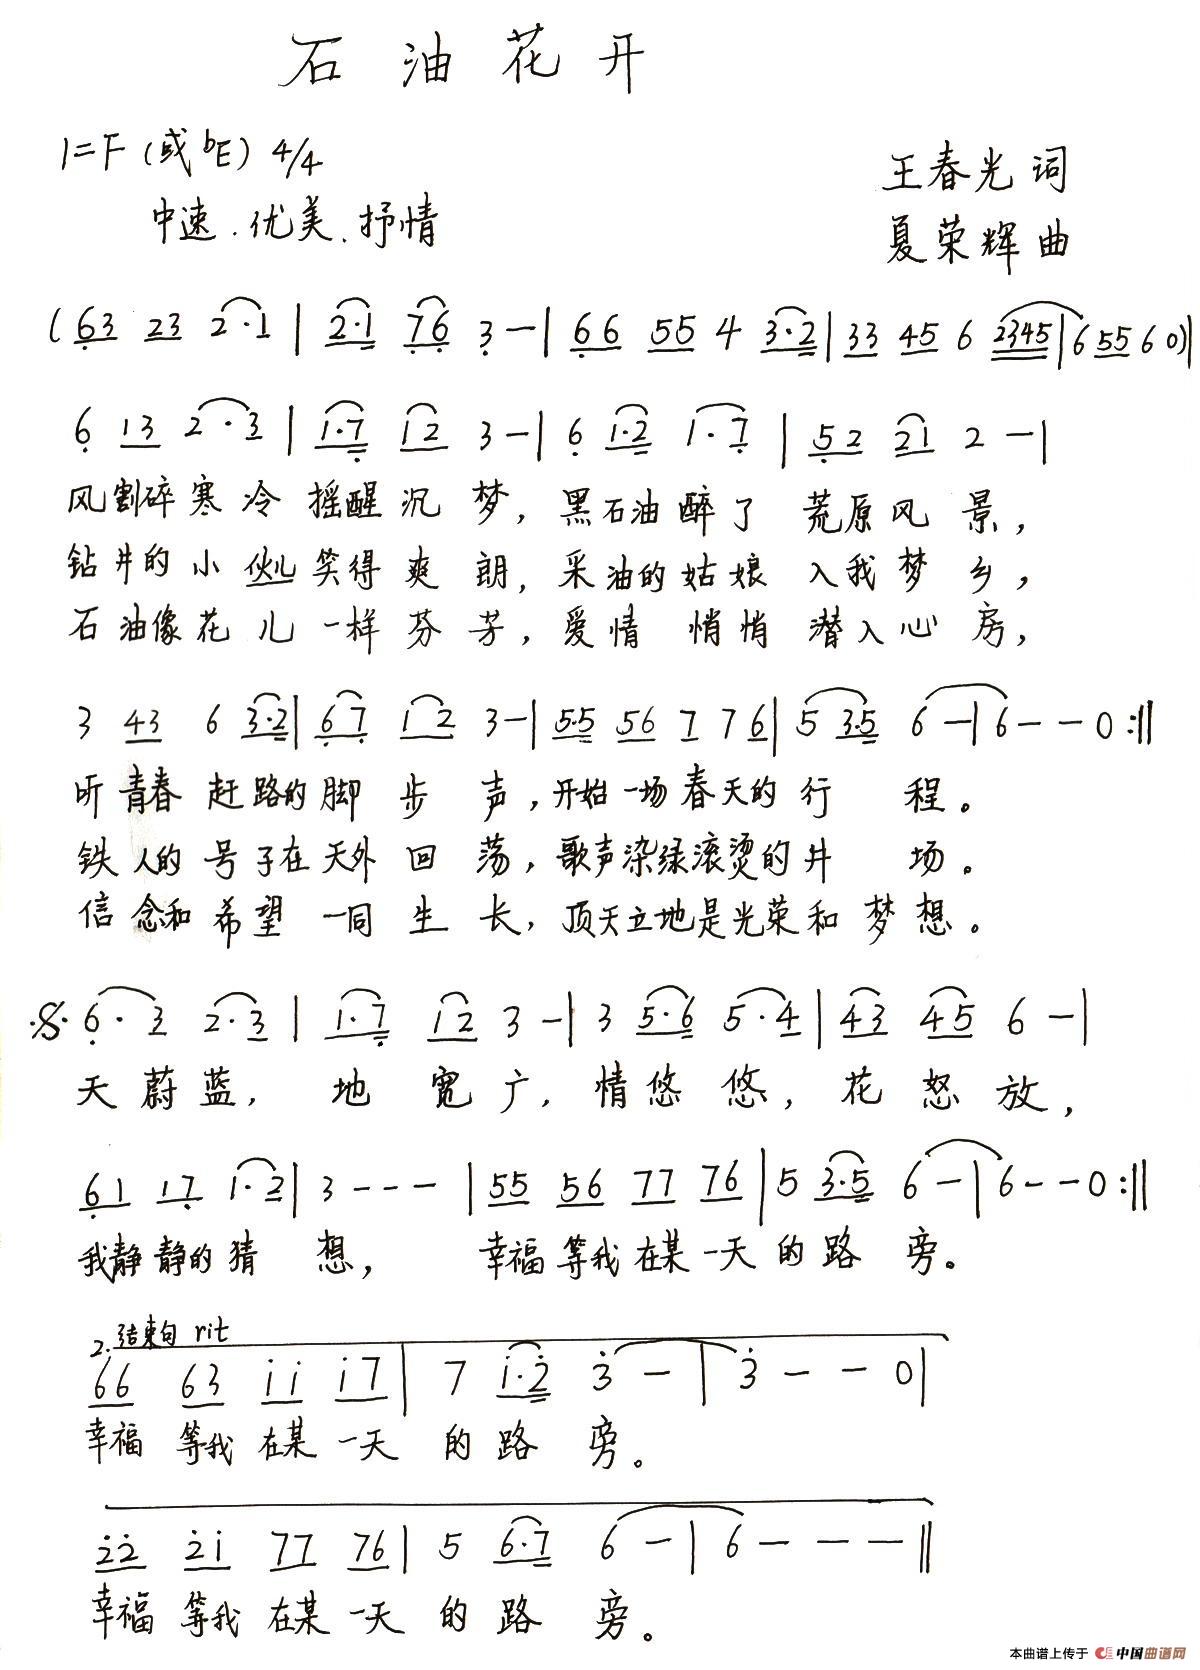 石油花开
1=F(或bE) 4/4
王春光 词
中速.优美、抒情
夏荣辉 曲
(63 23 2·1 | 2·1 76 3 — | 66 55 4 3·2 | 33 45 6 2345 | 6 55 6 0) ||
6 13 2·3 | 1·7 12 3 — | 6 1·2 1·7 | 52 21 2 — |
风割碎寒冷摇醒沉梦,黑石油醉了荒原风景,
钻井的小伙儿笑得爽朗,采油的姑娘入我梦乡,
石油像花儿一样芬芳,爱情悄悄潜入心房,
3 43 6 3·2 | 67 12 3 — | 5·5 56 7 7 6 | 5 3·5 6 — | 6 — — 0 :||
听青春赶路的脚步声,开始一场春天的行程。
铁人的号子在天外回荡,歌声染绿滚烫的井场。
信念和希望一同生长,顶天立地是光荣和梦想。
𝄋 6·3 2·3 | 1·7 12 3 — | 3 5·6 5·4 | 43 45 6 — |
天蔚蓝,地宽广,情悠悠,花怒放,
61 17 1·2 | 3 - - - | 55 56 77 76 | 5 3·5 6 — | 6 — — 0 :||
我静静的猜想,幸福等我在某一天的路旁。
2.结束句 rit
66 63 i i i 7 | 7 i·2 3 — | 3 — — 0 |
幸福等我在某一天的路旁。
22 2i 77 76 | 5 6·7 6 — | 6 — — — ||
幸福等我在某一天的路旁。
本曲谱上传于 中国曲谱网